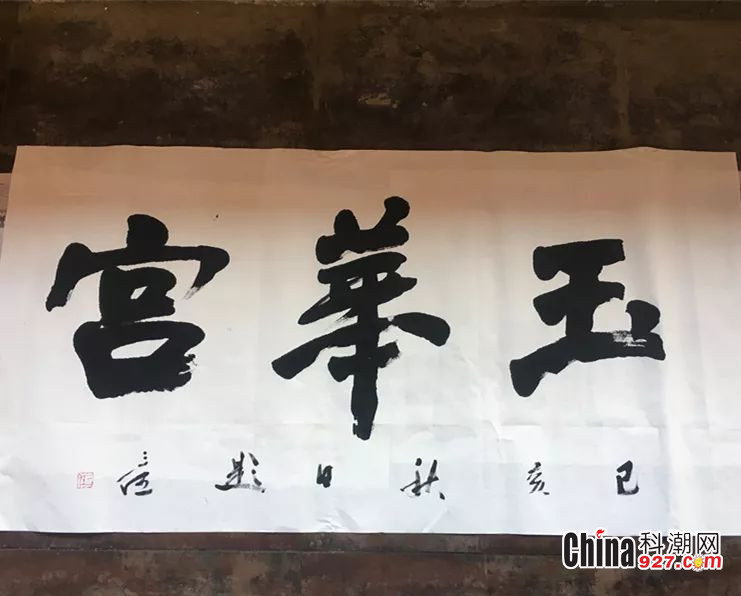 玉華宮
己亥秋日題
China科潮网
927.com